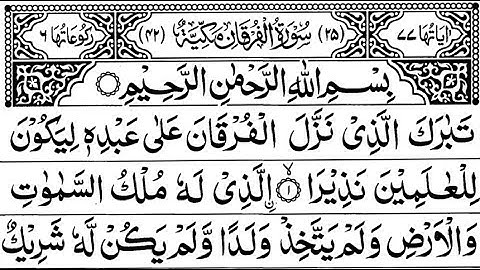 اٰیَاتُهَا ٧٧ (٢٥) سُوْرَةُ الْفُرْقَانِ مَكِّيَّةٌ (٤٢) رُكُوْعَاتُهَا ٦
بِسْمِ اللهِ الرَّحْمٰنِ الرَّحِيْمِ
تَبٰرَكَ الَّذِيْ نَزَّلَ الْفُرْقَانَ عَلٰى عَبْدِهٖ لِيَكُوْنَ
لِلْعٰلَمِيْنَ نَذِيْرَا ۙ﴿١﴾ اِۨلَّذِيْ لَهٗ مُلْكُ السَّمٰوٰتِ
وَالْاَرْضِ وَلَمْ يَتَّخِذْ وَلَدًا وَّلَمْ يَكُنْ لَّهٗ شَرِيْكٌ